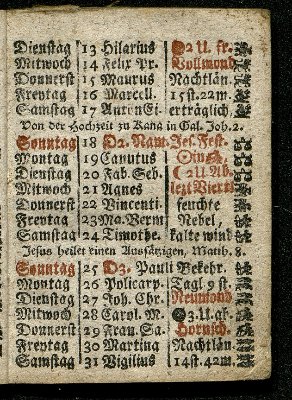 Dienstag 13 Hilarius 2 U. fr.
Mitwoch 14 Felix Pr. Vollmond
Donnerst 15 Maurus Nachtlän.
Freytag 16 Marcell. 15 st. 22 m.
Samstag 17 Anton Ei. erträglich,
Von der Hochzeit zu Kana in Gal. Joh. 2.
Sonntag 18 D2. Nam. Jes. Fest.
Montag 19 Canutus
Dienstag 20 Fab. Seb. 2 U. Ab.
Mitwoch 21 Agnes letzt Viertl
Donnerst 22 Vincenti. feuchte
Freytag 23 Ma. Verm Nebel,
Samstag 24 Timothe. kalte wind
Jesus heilet einen Aussätzigen, Matth. 8.
Sonntag 25 D3. Pauli Bekehr.
Montag 26 Policarp. Tagl. 9 st.
Dienstag 27 Joh. Chr. Neumond
Mitwoch 28 Carol. M. 3. U. ab.
Donnerst 29 Fran. Sa. Hornsch.
Freytag 30 Martina Nachtlän.
Samstag 31 Vigilius 14 st. 42 m.